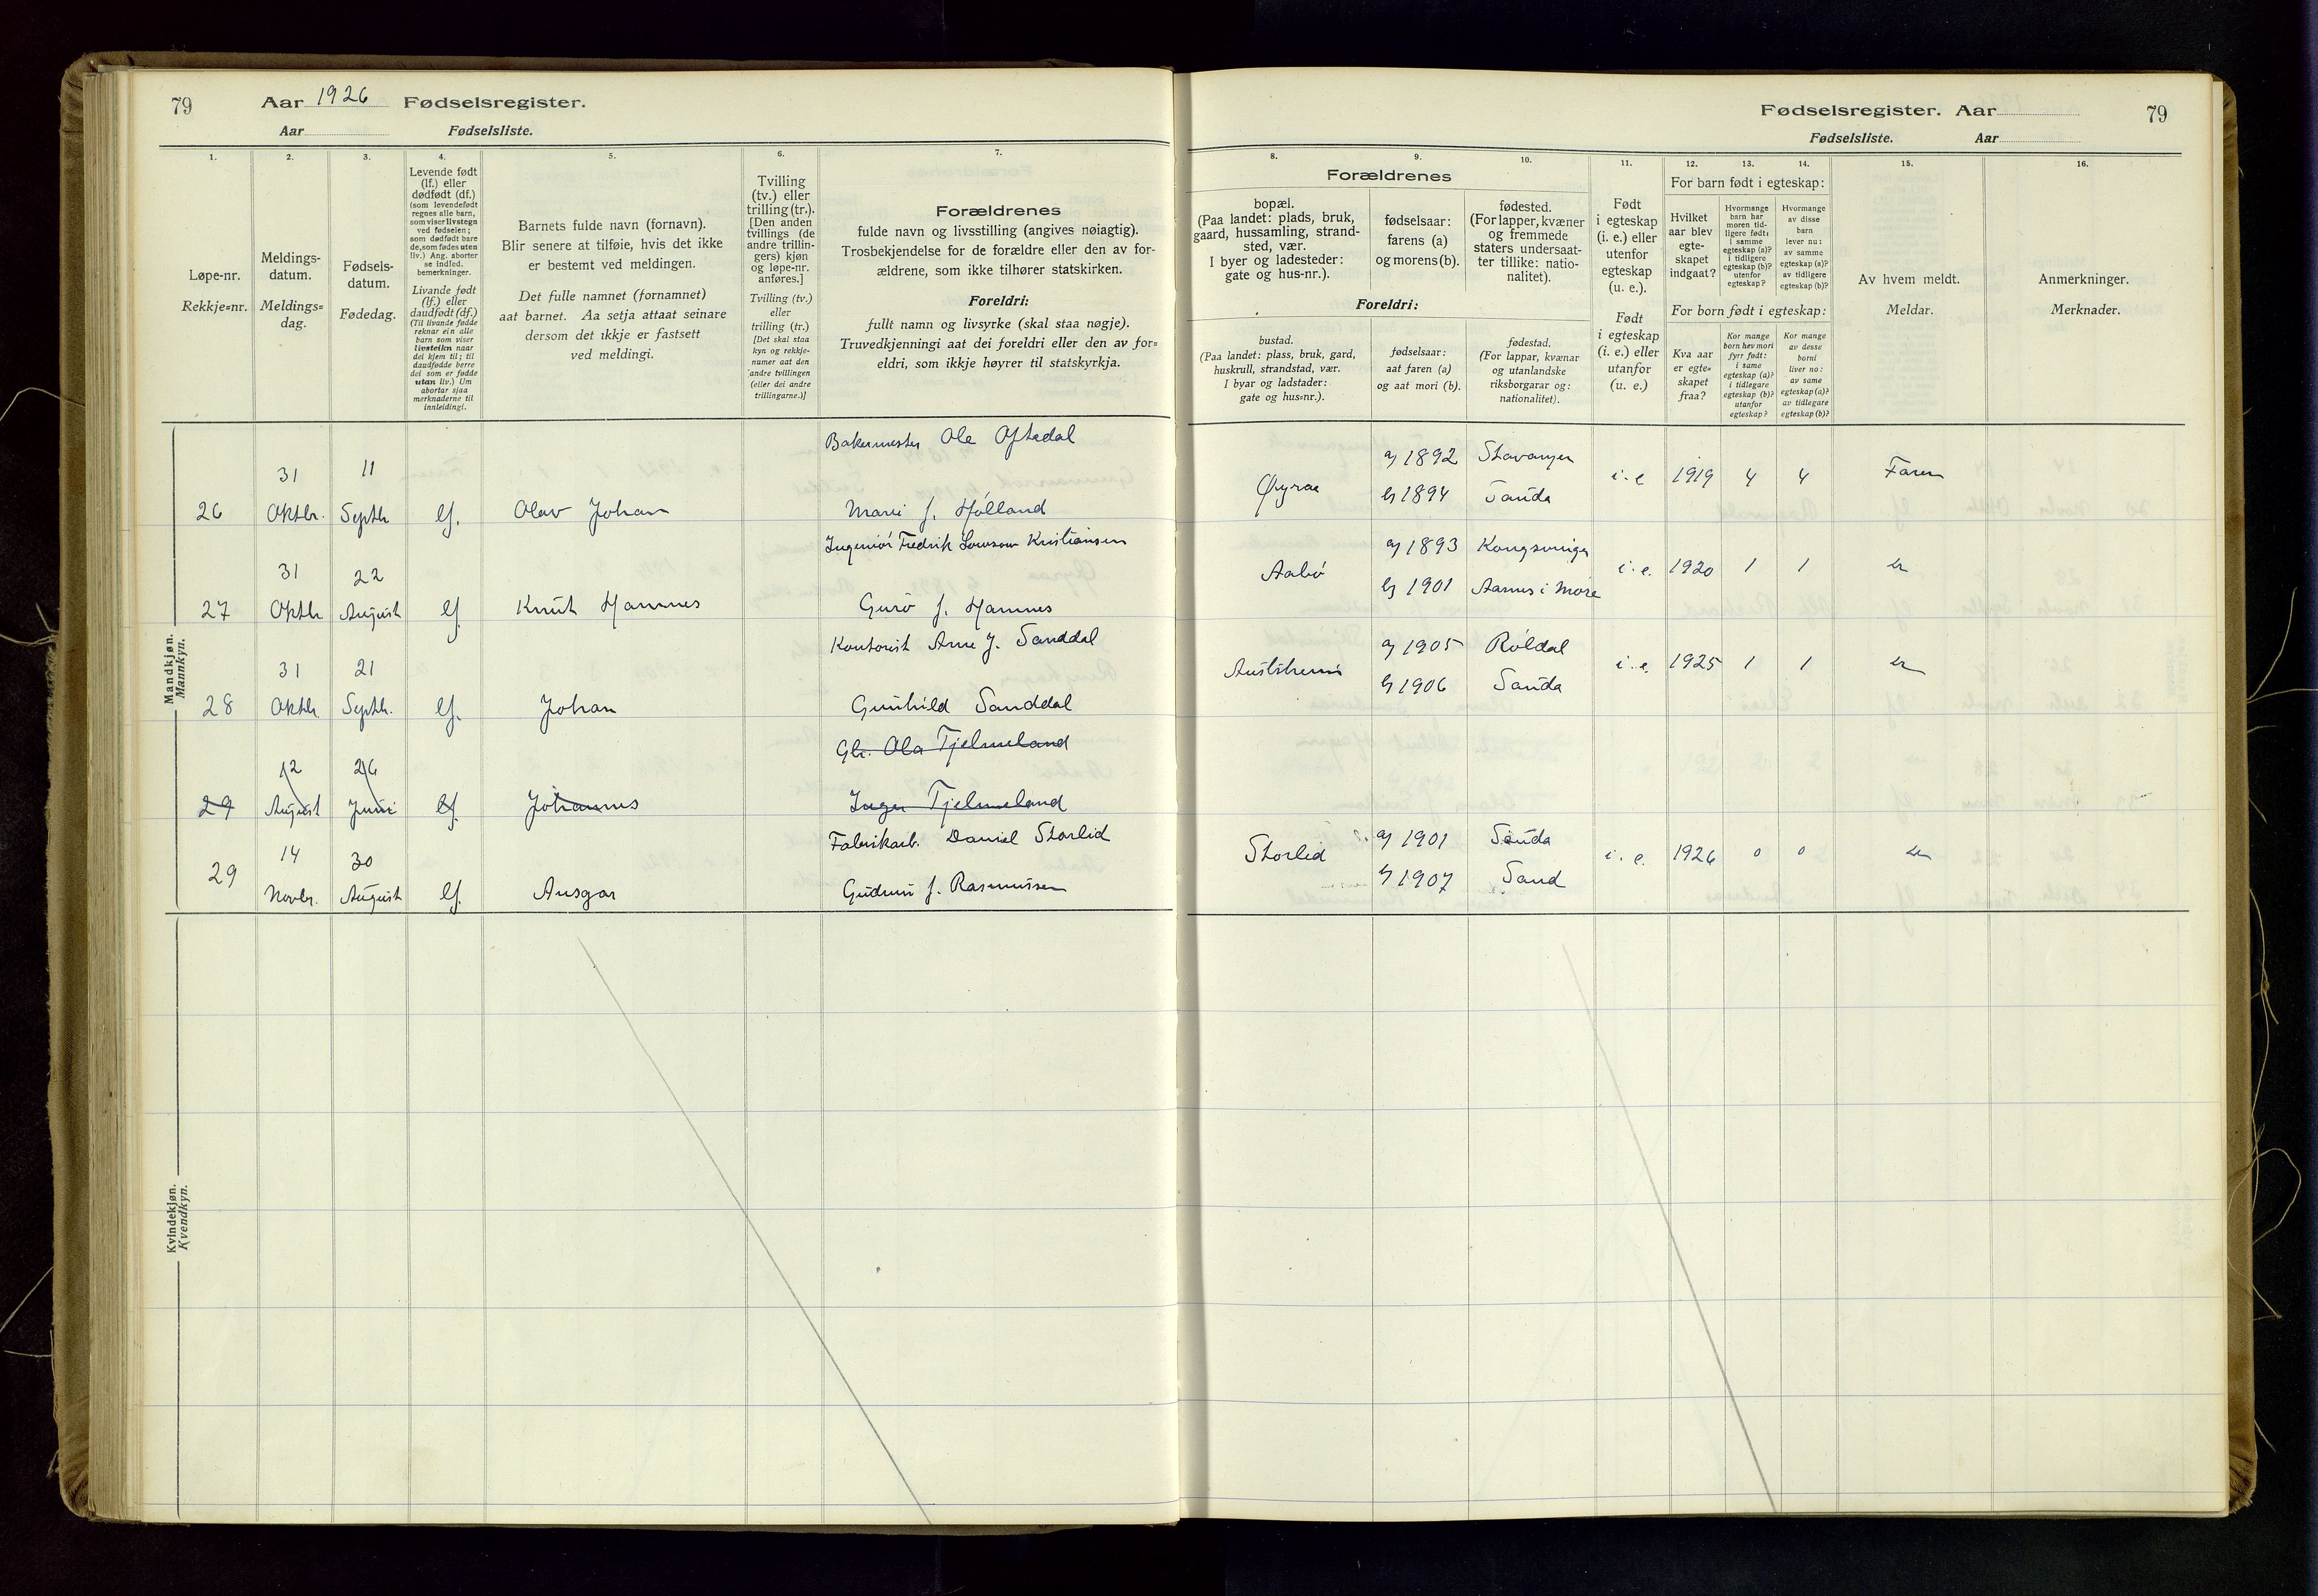 79 Aar 1926 Fødselsregister.
Aar Fødselsliste.
1. 2. 3. 4. 5. 6. 7.
Løpe-nr.
Rekkje=nr.
Meldings-
datum.
Meldings=
dag.
Fødsels-
datum.
Fødedag.
Levende født
(lf.) eller
dødfødt (df.)
(som levendefødt
regnes alle barn,
som viser livstegn
ved fødselen;
som dødfødt bare
de, som fødes uten
liv.) Ang. aborter
se indled.
bemerkninger.
Livande født
(lf.) eller
daudfødt (df.)
(Til livande fødde
reknar ein alle
barn som viser
livsteikn naar
dei kjem til; til
daudfødde berre
dei som er fødde
utan liv.) Um
abortar sjaa
merknaderne til
innleidingi.
Barnets fulde navn (fornavn).
Blir senere at tilføie, hvis det ikke
er bestemt ved meldingen.
Det fulle namnet (fornamnet)
aat barnet. Aa setja attaat seinare
dersom det ikkje er fastsett
ved meldingi.
Tvilling
(tv.) eller
trilling (tr.).
[Den anden
tvillings (de
andre trillin-
gers) kjøn
og løpe-nr.
anføres.]
Tvilling (tv.)
eller
trilling (tr.)
[Det skal staa
kyn og rekkje-
numer aat den
andre tvillingen
(eller dei andre
trillingarne.)]
Forældrenes
fulde navn og livsstilling (angives nøiagtig).
Trosbekjendelse for de forældre eller den av for-
ældrene, som ikke tilhører statskirken.
Foreldri:
fullt namn og livsyrke (skal staa nøgje).
Truvedkjenningi aat dei foreldri eller den av for=
eldri, som ikkje høyrer til statskyrkja.
Mandkjøn.
Mannkyn.
Bakermester Ole Oftedal
31 11
26 Oktbr. Septbr lf. Olav Johan Marie f. Hølland
Ingeniør Fredrik Kristiansen
31 22
27 Oktbr August lf. Knut Hamnes Guro f. Hamnes
Kontorist Arne J. Sanddal
31 21
28 Oktbr. Septbr. lf. Johan Gunhild Sanddal
Gbr. Ola Tjelmeland
12 26
29 August Juni lf. Johannes Inger Tjelmeland
Fabrikarb. Daniel Storlid
14 30
29 Novbr. August lf. Ansgar Gudrun f. Rasmussen
Kvindekjøn.
Kvendkyn.
Fødselsregister. Aar 79
Fødselsliste. Aar
8. 9. 10. 11. 12. 13. 14. 15. 16.
Forældrenes
bopæl.
(Paa landet: plads, bruk,
gaard, hussamling, strand-
sted, vær.
I byer og ladesteder:
gate og hus-nr.).
fødselsaar:
farens (a)
og morens (b).
fødested.
(For lapper, kvæner
og fremmede
staters undersaat-
ter tillike: natio-
nalitet).
Foreldri:
bustad.
(Paa landet: plass, bruk, gard,
huskrull, strandstad, vær.
I byar og ladstader:
gate og hus=nr.).
fødselsaar:
aat faren (a)
og aat mori (b).
fødestad.
(For lappar, kvænar
og utanlandske
riksborgarar og:
nationalitet).
Født
i egteskap
(i. e.) eller
utenfor
egteskap
(u. e.).
Født
i egteskap
(i. e.) eller
utanfor
(u. e.)
For barn født i egteskap:
Hvilket
aar blev
egte-
skapet
indgaat?
Hvormange
barn har
moren tid-
ligere født:
i samme
egteskap (a)?
i tidligere
egteskap (b)?
utenfor
egteskap?
Hvormange
av disse
barn
lever nu:
av samme
egteskap (a)?
av tidligere
egteskap (b)?
For born født i egteskap:
Kva aar
er egte=
skapet
fraa?
Kor mange
born hev mori
fyrr født:
i same
egteskap (a)?
i tidlegare
egteskap (b)?
utanfor
egteskap?
Kor mange
av desse
borni
liver no:
av same
egteskap (a)?
av tidlegare
egteskap (b)?
Av hvem meldt.
Meldar.
Anmerkninger.
Merknader.
a) 1892 Stavanger
Øyraa i. e 1919 4 4 Faren
b) 1894 Sauda
a) 1893 Kongsvinger
Aabø i. e. 1920 1 1
b) 1901 Aarnes i Møre
a) 1905 Røldal
Austrheim i. e. 1925 1 1
b) 1906 Sauda
a) 1901 Sauda
Storlid i. e. 1926 0 0
b) 1907 Sand